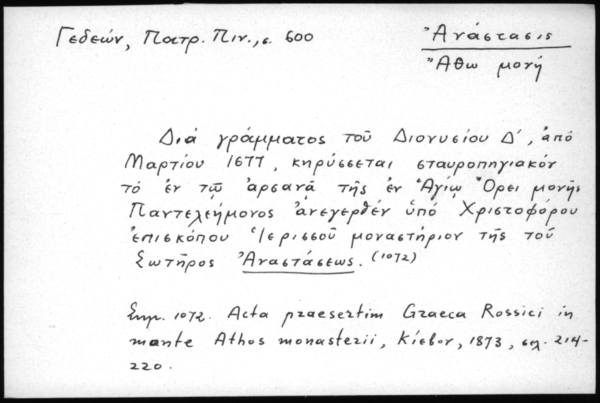 Γεδεών, Πατρ. Πιν., σ. 600
Ἀνάστασις
Ἄθω μονή
Διά γράμματος τοῦ Διονυσίου Δ΄, ἀπό
Μαρτίου 1677, κηρύσσεται σταυροπηγιακόν
τό ἐν τῷ ἀρσανᾷ τῆς ἐν Ἁγίῳ Ὄρει μονῆς
Παντελεήμονος ἀνεγερθέν ὑπό Χριστοφόρου
ἐπισκόπου Ἱερισσοῦ μοναστήριον τῆς τοῦ
Σωτῆρος Ἀναστάσεως. (1072)
Σημ. 1072. Acta praesertim Graeca Rossici in
monte Athos monasterii, Κίεβον, 1873, σελ. 214-
220.